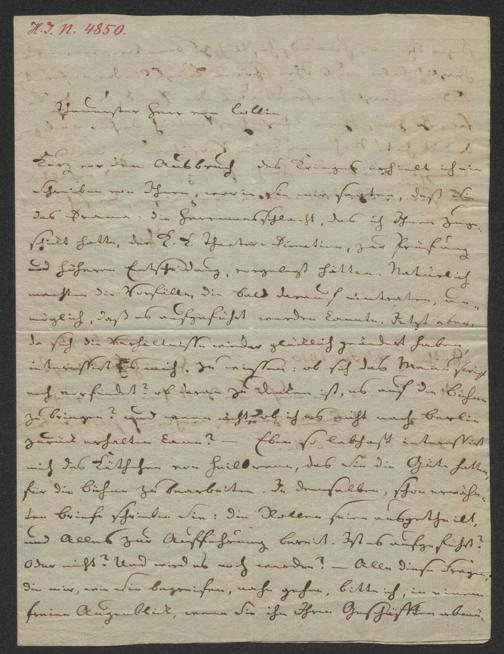 H. I. N. 4850.
Theuerster Herr von Collin,
Kurz vor dem Ausbruch des Krieges erhielt ich ein
Schreiben von Ihnen, worin Sie mir sagten, daß Sie
das Drama: die Herrmannsschlacht, das ich Ihnen zuge-
schickt hatte, der K. K. Theater-Direction, zur Prüfung
und höheren Entscheidung, vorgelegt hätten. Natürlich
machten die Vorfälle, die bald darauf eintraten, un-
möglich, daß es aufgeführt werden konnte. Jetzt aber,
da sich die Verhältnisse wieder glücklich geändert haben,
interessirt es mich, zu wissen: ob sich das Manuscript
noch vorfindet? ob daran zu denken ist, es auf die Bühne
zu bringen? und wenn nicht, ob ich es nicht nach Berlin
zurück erhalten kann? – Eben so lebhaft interessirt
mich das Käthchen von Heilbronn, das Sie die Güte hatten,
für die Bühne zu bearbeiten. In demselben, schon erwähn-
ten Briefe schrieben Sie: die Rollen seien ausgetheilt,
und Alles zur Aufführung bereit. Ist es aufgeführt?
Oder nicht? Und wird es noch werden? – Alle diese Fragen,
die mir, wie Sie begreifen, nahe gehen, bitte ich, in einem
freien Augenblick, wenn Sie ihn Ihren Geschäfften abmü-